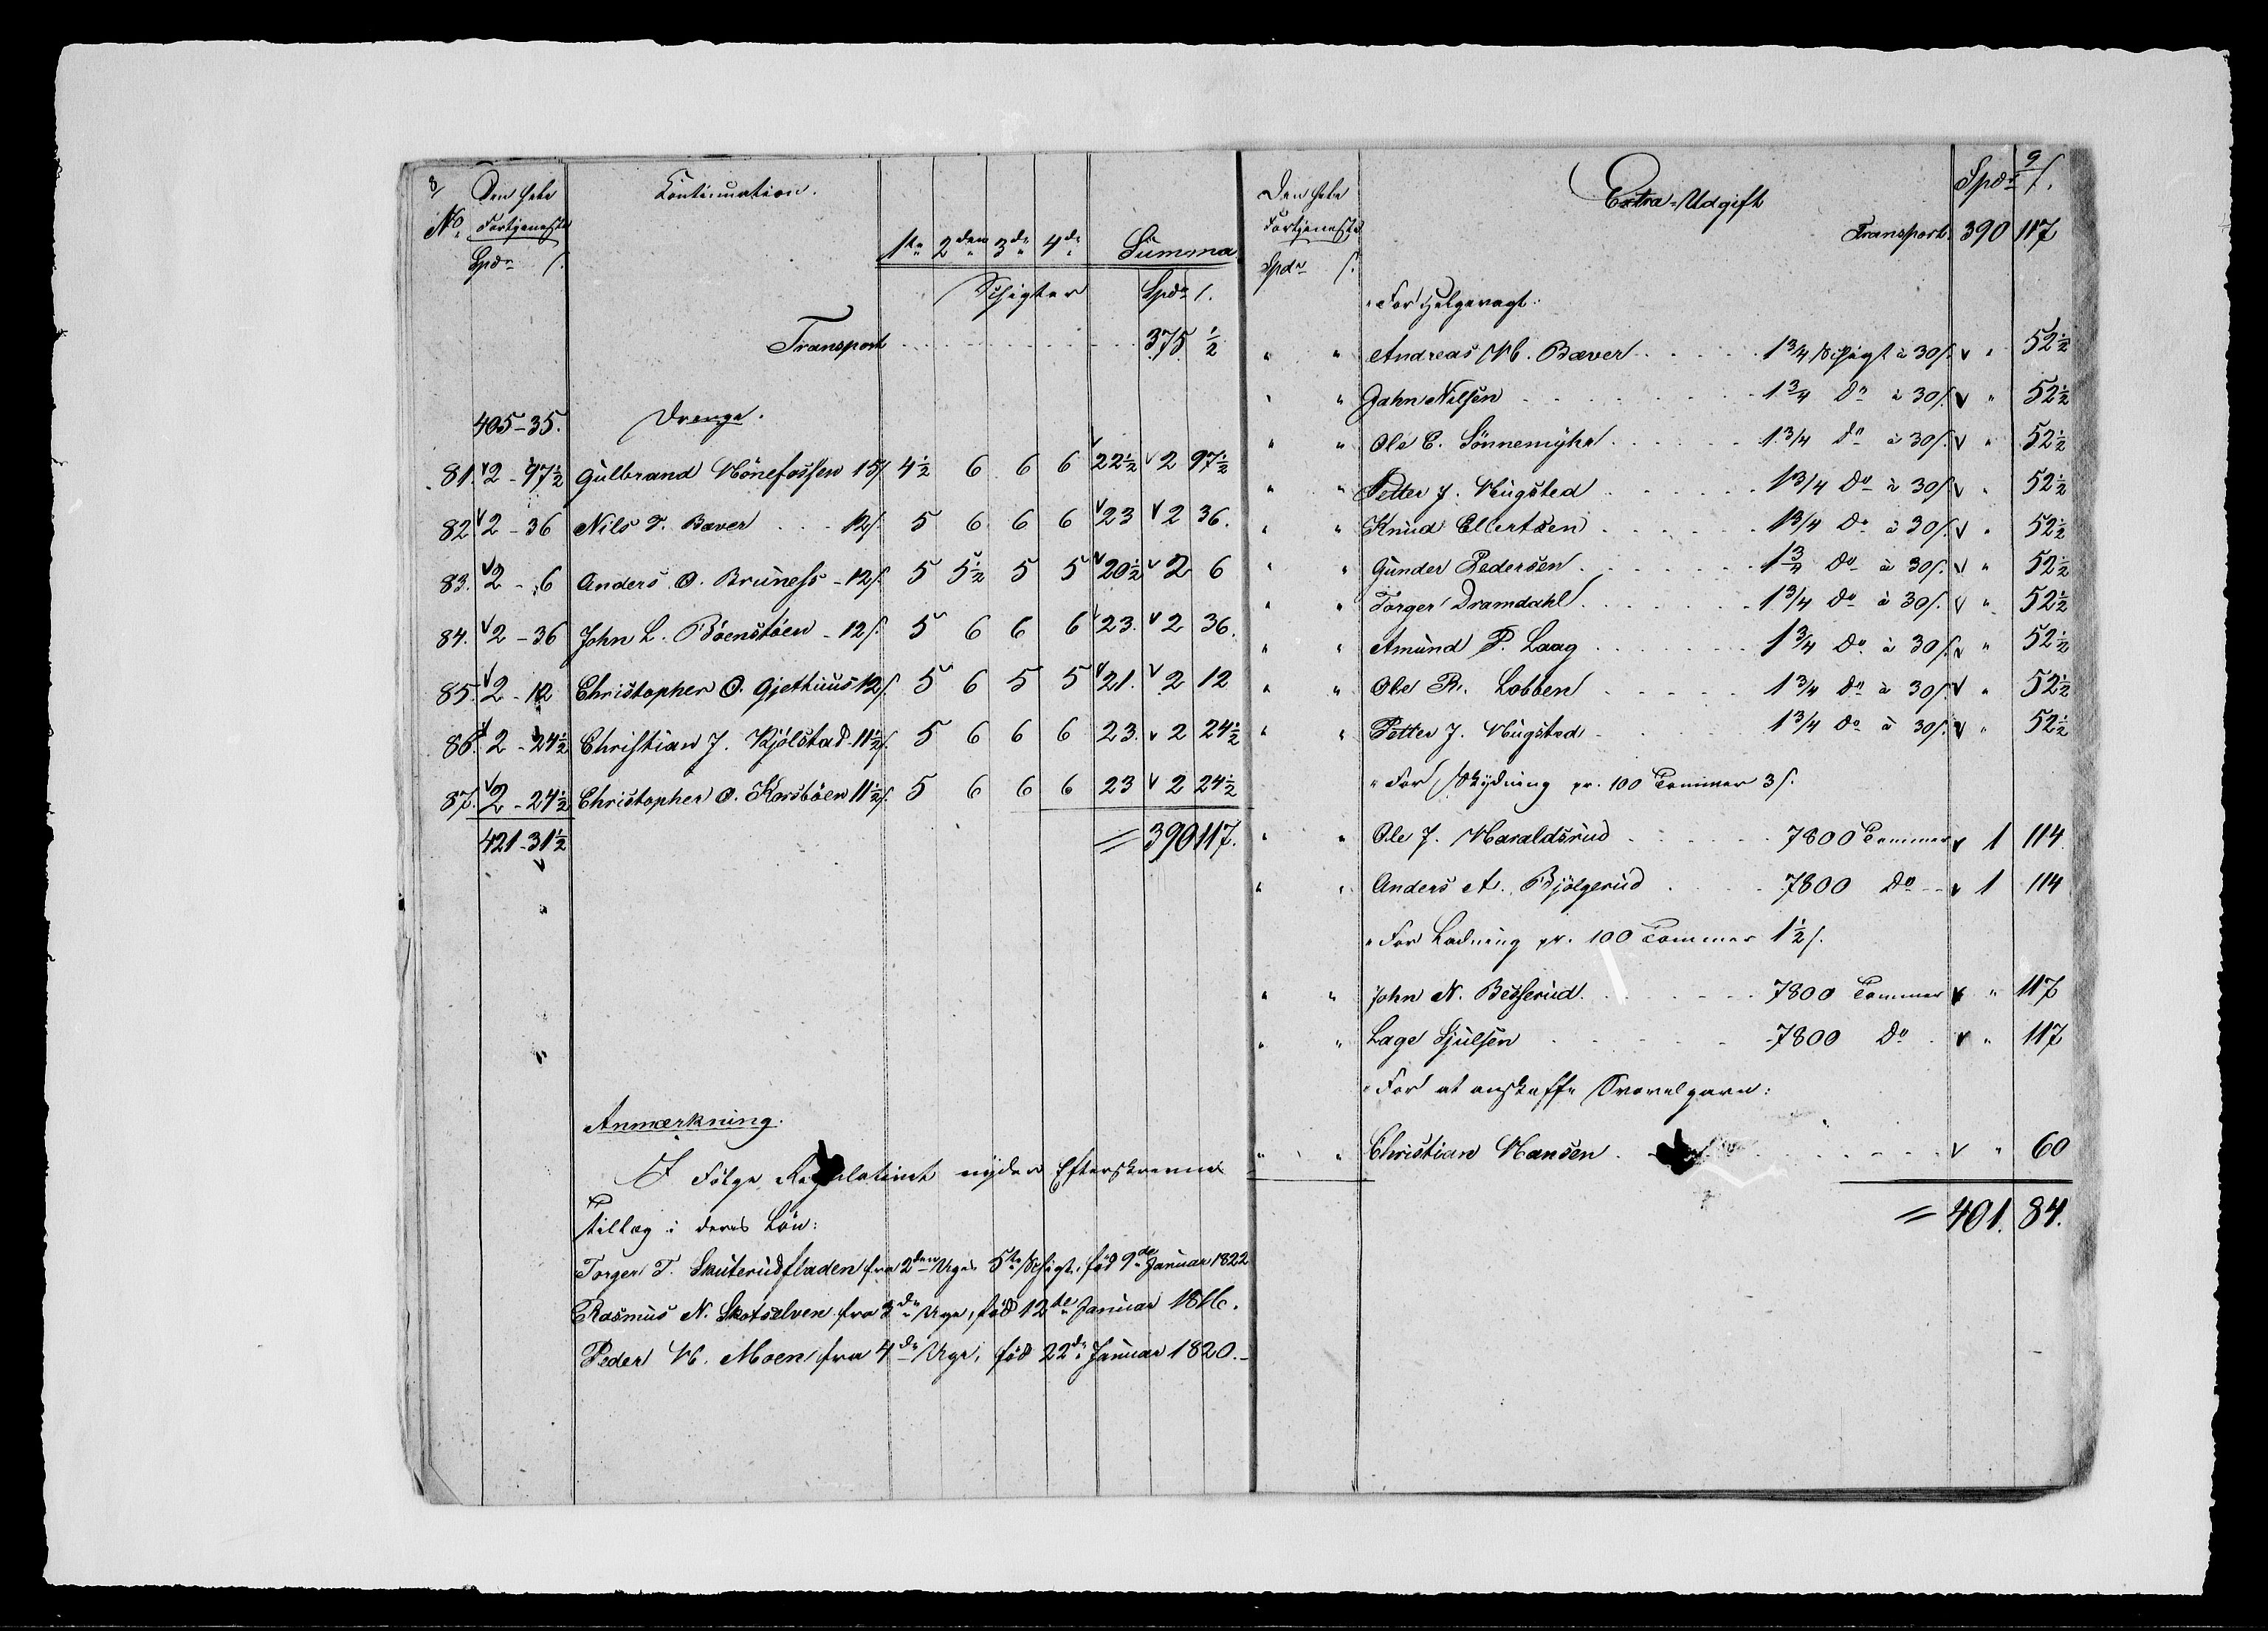 8/
Den hele
Continuation.
No. Fortjeneste
1ste 2den 3die 4de Summa
Spdr. s.
Schigter Spdr. s.
Transport 375 ½
405-35. Drenge.
81. 2-97½ Gulbrand Hönefossen 15s 4½ 6 6 6 22½ 2 97½
82 2-36 Nils T. Bæver 12s. 5 6 6 6 23 2 36.
83. 2-6 Anders O. Bruness - 12s. 5 5½ 5 5 20½ 2 6
84. 2-36 John L. Böenstöen - 12s. 5 6 6 6 23. 2 36.
85. 2-12 Christopher O. Gjethuus 12s. 5 6 5 5 21. 2 12
86. 2-24½ Christian J. Kjölstad 11½s. 5 6 6 6 23. 2 24½
87. 2-24½ Christopher O. Korsböen 11½s. 5 6 6 6 23 2 24½
421-31½ = 390 117.
Anmærkning.
I Fölge Regulativet nyder Efterskrevne
Tillæg i deres Lön:
Torger T. Skuterudfladen fra 2den Uges 5te Schigt, föd 9de Januar 1822
Rasmus N. Skotselven fra 3die Uge, föd 12te Januar 1816.
Peder H. Moen fra 4de Uge, föd 22de Januar 1820.
9
Den hele
Extra-Udgift Spdr. s.
Fortjeneste
Transport. 390 117
Spdr. s.
" For Helgevagt:
" " Andreas H. Bæver 1¾ Schigt à 30s. " 52½
" " Jahn Nilsen 1¾ Do à 30s. " 52½
" " Ole E. Sönnemyhr 1¾ Do à 30s. " 52½
" " Petter J. Hugsted 1¾ Do à 30s. " 52½
" " Knud Ellertsen 1¾ Do à 30s. " 52½
" " Gunder Pedersen 1¾ Do à 30s. " 52½
" " Torger Dramdahl 1¾ Do à 30s. " 52½
" " Amund P. Laag 1¾ Do à 30s. " 52½
" " Ole R. Lobben 1¾ Do à 30s. " 52½
" " Petter J. Hugsted 1¾ Do à 30s. " 52½
" For Skydning pr. 100 Tommer 3s.
" " Ole J. Haraldsrud 7800 Tommer 1 114
" " Anders A. Bjölgerud 7800 Do 1 114
" For Ladning pr. 100 Tommer 1½s.
" " John N. Besserud 7800 Tommer " 117
" " Lage Sjulsen 7800 Do " 117
" For at anskaffe Svovelgarn:
" " Christian Hansen " 60
= 401. 84.